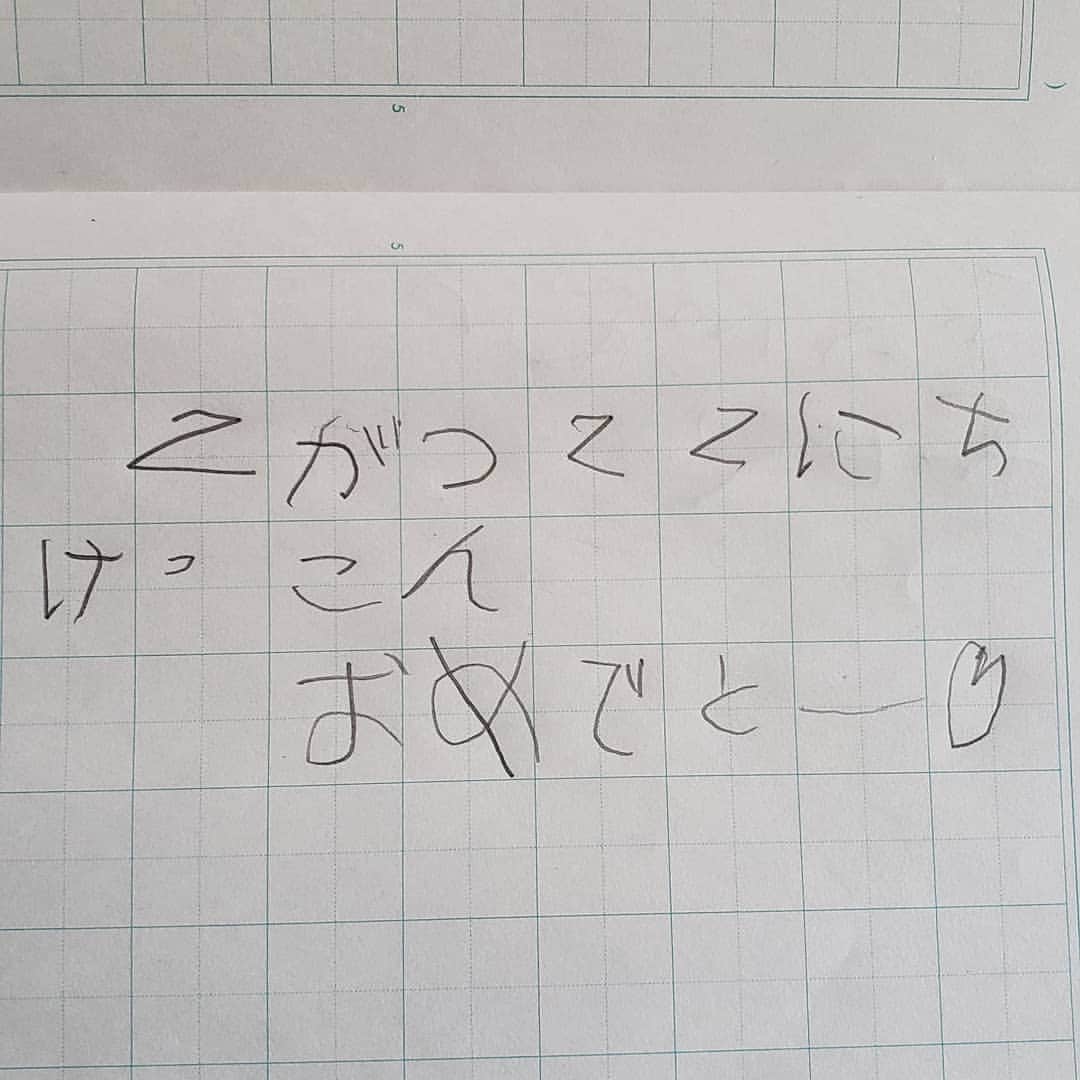 5
5
2がつ22にち
けっこん
おめでとー